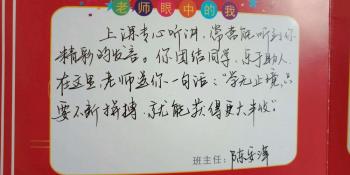 老师眼中的我
上课专心听讲，常常能听到你
精彩的发言。你团结同学，乐于助人，
在这里，老师送你一句话：“学无止境，只
要不断拼搏，就能获得更大丰收”。
班主任：陈